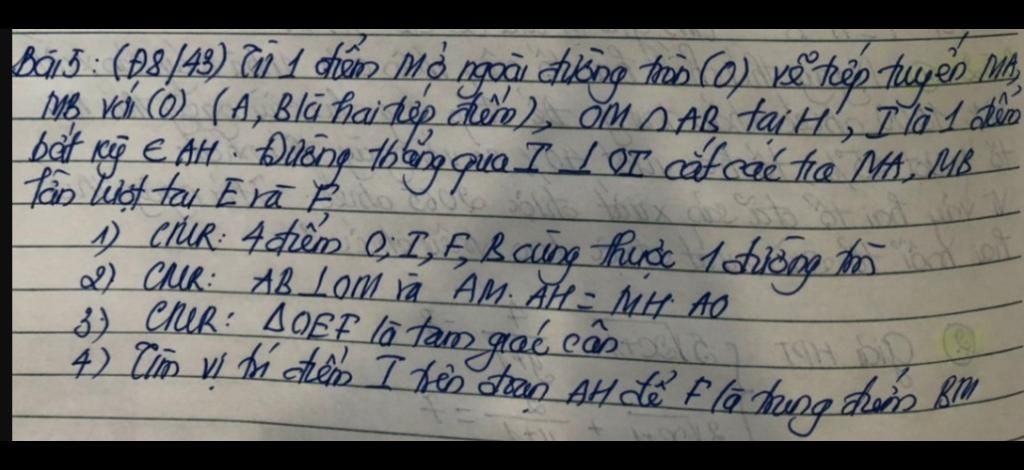 Bài 5: (Đ8/43) Từ 1 điểm M ở ngoài đường tròn (O) vẽ tiếp tuyến MA,
MB với (O) (A, B là hai tiếp điểm), OM ∩ AB tại H, I là 1 điểm
bất kỳ ∈ AH. Đường thẳng qua I ⊥ OI cắt các tia MA, MB
lần lượt tại E và F
1) CMR: 4 điểm O, I, F, B cùng thuộc 1 đường tròn
2) CMR: AB ⊥ OM và AM. AH = MH. AO
3) CMR: ΔOEF là tam giác cân
4) Tìm vị trí điểm I trên đoạn AH để F là trung điểm BM